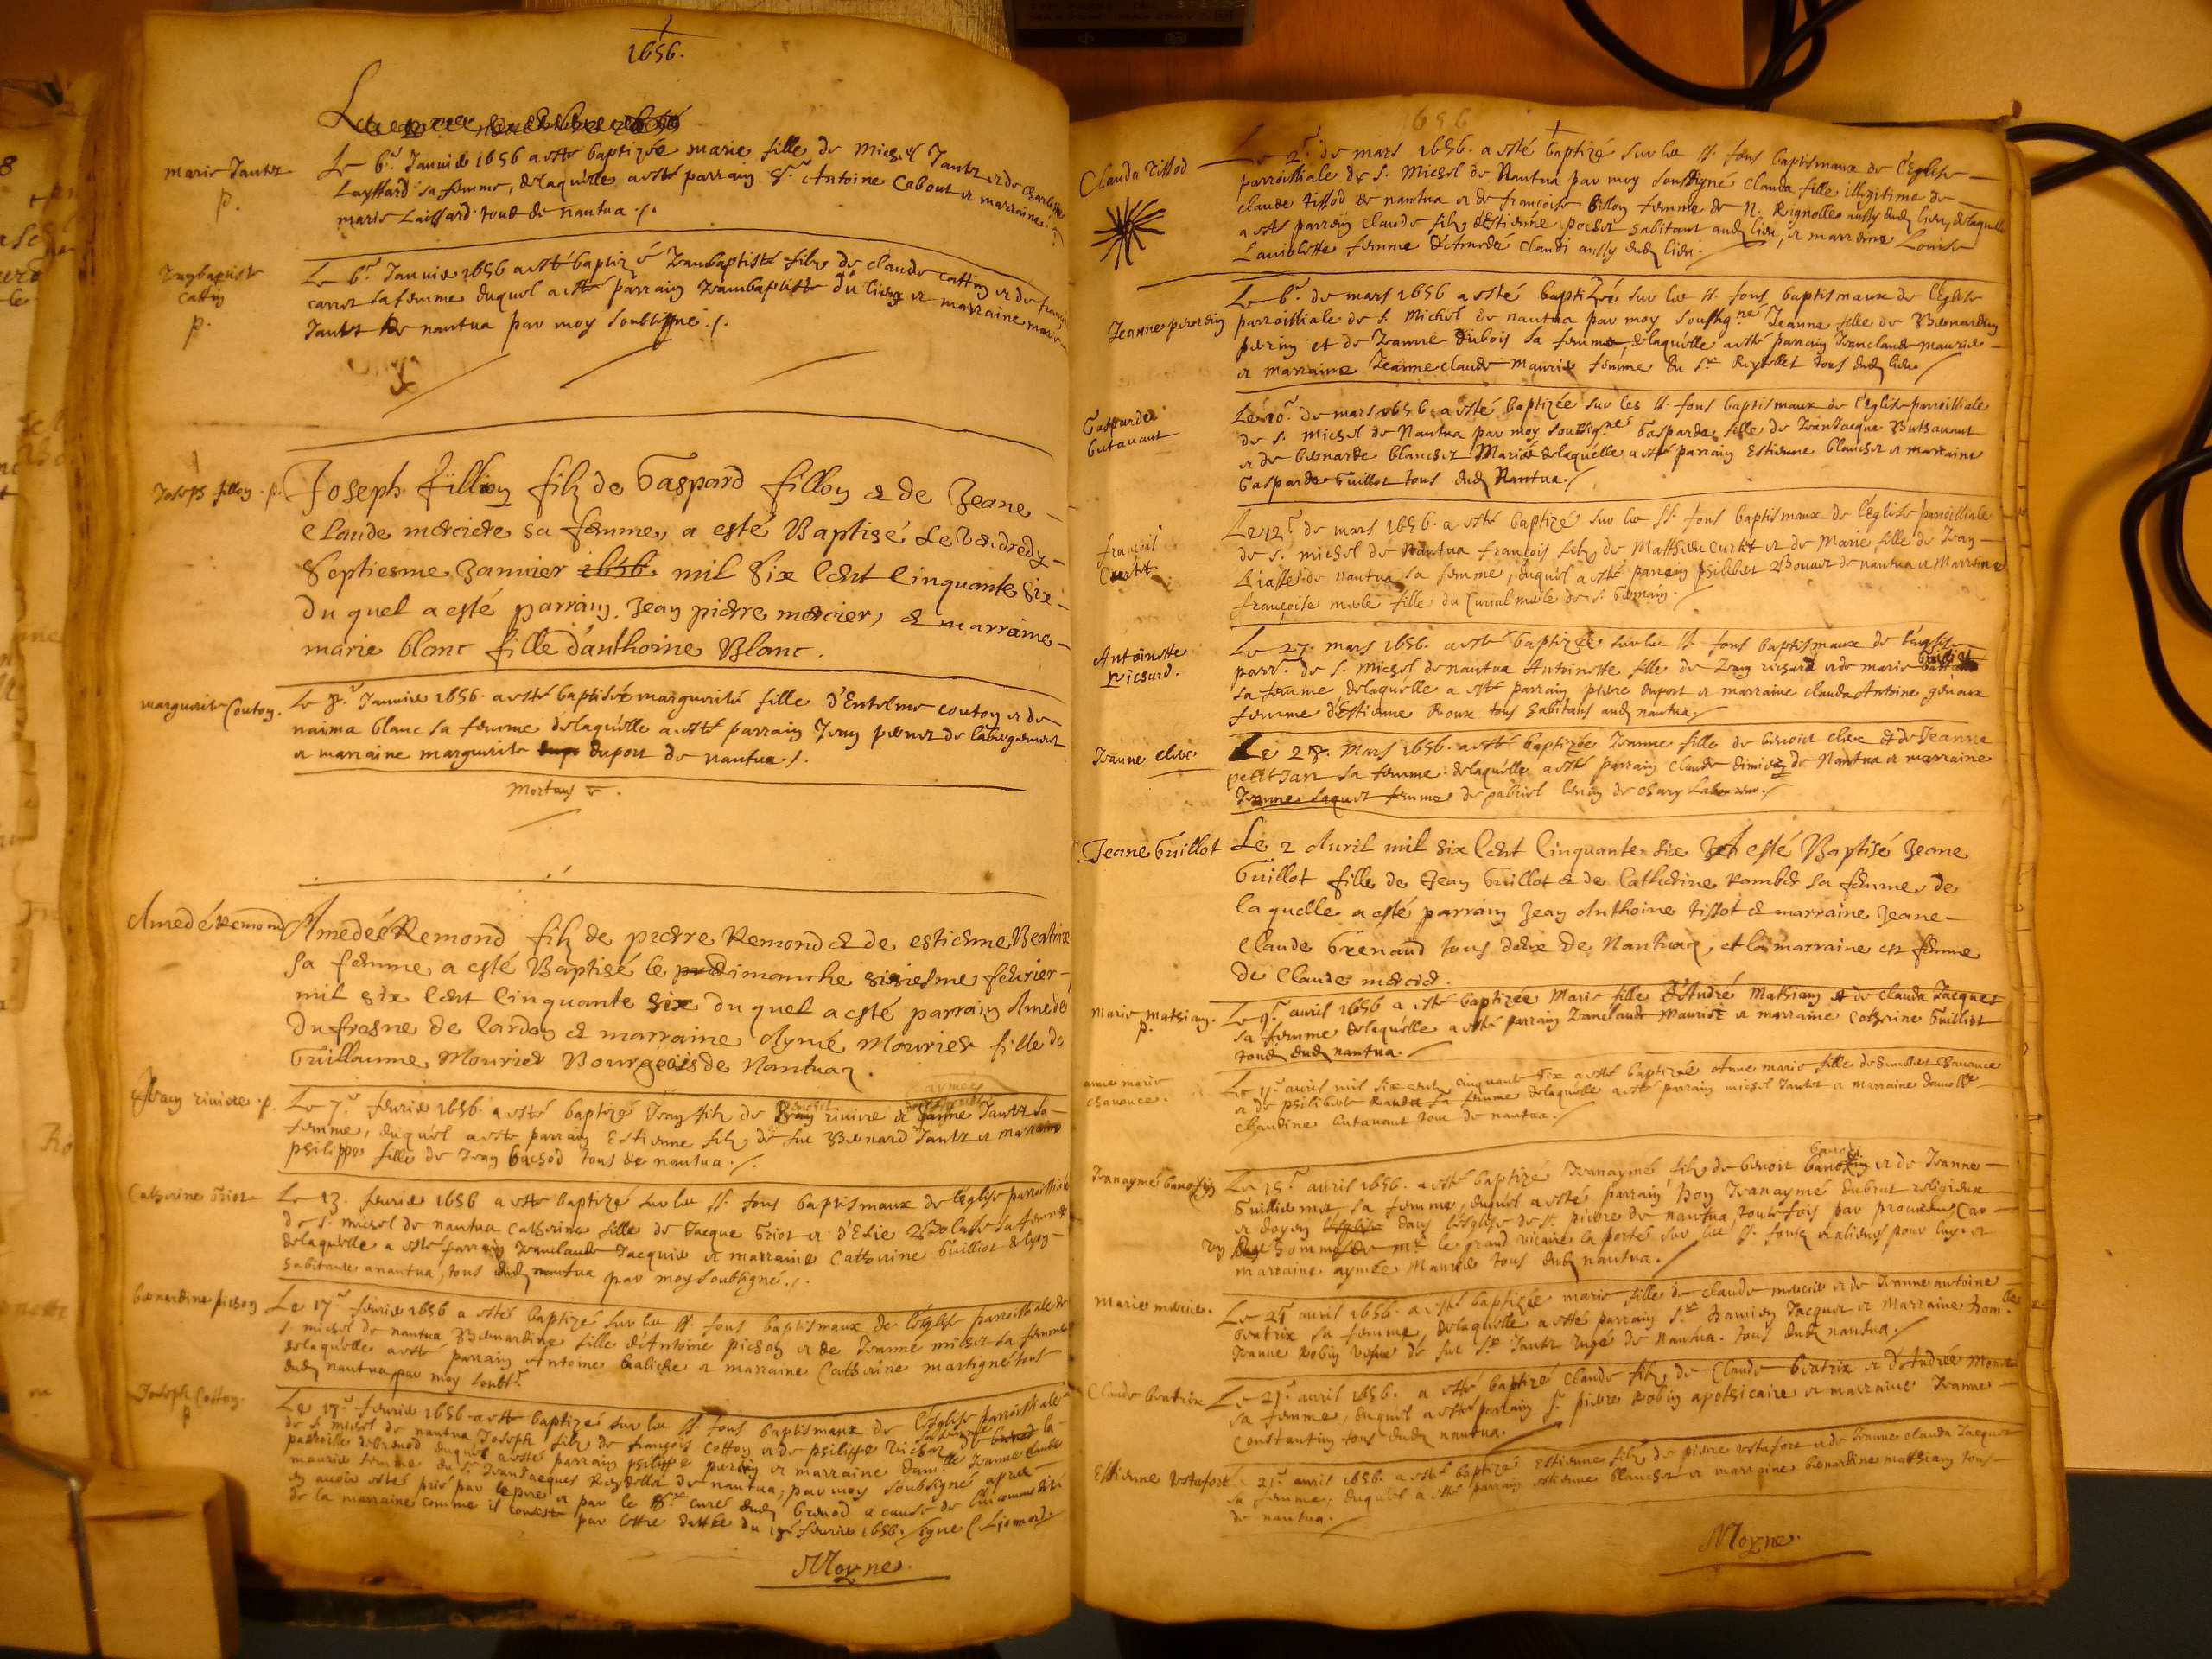 1656.
marie Jantet
p.
Le 6.r Janvier 1656 a esté baptizée marie fille de Michel Jantet et de
Layssard sa femme, delaquelle a esté parrain Sr. Antoine Cabout et marraine
marie Laissard tous de nantua ./.
Janbaptiste
Cattin
p.
Le 6.r Janvier 1656 a esté baptizé Jeanbaptiste filz de claude cattin et de
carret sa femme duquel a esté parrain Jeanbaptiste du lieu et marraine marie
Jantet de nantua par moy soubsigné ./.
Joseph fillon . p.
Joseph fillion filz de Gaspard fillon & de Jeane
Claude merciere sa femme, a esté Baptisé le Vendredy
Septiesme Janvier 1656 mil six Cent Cinquante six
du quel a esté parrain Jean pierre mercier, & marraine
marie blanc fille d'anthoine Blanc .
marguerite Couton.
Le 8.r Janvier 1656. a esté baptisée marguerite fille d'Entelme couton et de
naima blanc sa femme delaquelle a esté parrain Jean perret de labergement
et marraine marguerite duport de nantua ./.
Mortans
Amedé Remond
Amedeé Remond filz de pierre Remond & de estienne Beatrix
sa femme a esté Baptisé le dimanche sixiesme febvrier
mil six Cent Cinquante six du quel a esté parrain Amedé
Dufresne de Cardon & marraine Aymé Mourier fille de
Guillaume Mourier Bourgeois de Nantua .
Jean riviere . p.
Le 7.r febvrier 1656. a esté baptizé Jean filz de benoist riviere et aymee Jantet sa
femme, duquel a esté parrain Estienne filz de feu Bernard Jantet et marraine
philippe fille de Jean bachod tous de nantua ./.
Catherine Griot
Le 13. febvrier 1656 a esté baptizé sur les ss. fons baptismaux de l'église parroissiale
de s. michel de nantua Catherine fille de Jacque Griot et d'Elie sa femme
delaquelle a esté parrain Jeanclaude Jacquier et marraine Catherine Guilliot de lyon
habitante a nantua, tous dud nantua par moy soubsigné ./.
bernardine pichon
Le 17.r febvrier 1656 a esté baptizé sur les ss. fons baptismaux de l'église parroissiale de
s. michel de nantua Bernardine fille d'Antoine pichon et de Jeanne millet sa femme
delaquelle a esté parrain Antoine baliche et marraine Catherine martigné tous
dud nantua par moy soubs.
Joseph Cotton.
p
Le 17.r febvrier 1656 a esté baptizé sur les ss. fons baptismaux de l'église parroissiale
de s. michel de nantua Joseph filz de françois Cotton et de philippe Richer sa femme de la
parroisse de brenod duquel a esté parrain philippe perrin et marraine dam.lle Jeanne claude
maurier femme du Sr. Jean Jacques Reydellet de nantua, par moy soubsigné apres
en avoir esté prié par le pere et par le Sr. curé dud brenod a cause de
de la marraine comme il conste par lettre dattée du 17e febvrier 1656. Signe
Moyne.
1656
Clauda Tissod
Le 2.r de mars 1656. a esté baptizé sur les ss. fons baptismaux de l'Eglise
parroissiale de s. Michel de Nantua par moy soussigné Clauda fille illegitime de
claude tissod de nantua et de francoise billon femme de N. Rignolle aussy dud lieu, delaquelle
a esté parrein claude filz d'Estienne pochet habitant aud lieu, et marreine Louise
femme d'Amedé claudi aussy dud lieu ./
Jeanne perrin
Le 6.r de mars 1656 a esté baptizée sur les ss. fons baptismaux de l'église
parroissiale de s. Michel de nantua par moy soussig.né Jeanne fille de Bernardin
perrin et de Jeanne dubois sa femme, delaquelle a esté parrain Jeanclaude maurier
et marraine Jeanne claude maurier femme du Sr. Reydellet tous dud lieu /
Gasparde
butavant
Le 10.r de mars 1656 a esté baptizée sur les ss. fons baptismaux de l'église parroissiale
de s. Michel de Nantua par moy soussig.né Gasparde fille de JeanJacque Buthavant
et de bernarde blanchet Mariés delaquelle a esté parrain Estienne blanchet et marraine
Gasparde Guillot tous dud Nantua ./
françois
Curtet.
Le 12.r de mars 1656. a esté baptizé sur les ss. fons baptismaux de l'Eglise parroissiale
de s. michel de Nantua françois filz de Matthieu Curtet et de Marie fille de Jean
de nantua sa femme, duquel a esté parrain philibert Bouvet de nantua et Marreine
françoise fille du Curial de s. Germain ./
Antoinette
Richard.
Le 27. mars 1656. a esté baptizée sur les ss. fons baptismaux de l'église
parr. de s. Michel de nantua Antoinette fille de Jean richard et de marie
sa femme delaquelle a esté parrain pierre duport et marraine clauda Antoine genoux
femme d'Estienne Roux tous habitans aud nantua ./
Jeanne clerc
Le 28. Mars 1656. a esté baptizée Jeanne fille de benoist clerc & de Jeanne
petit Jan sa femme delaquelle a esté parrain Claude dimier de Nantua et marraine
Jeanne Jaquet femme de gabriel de Chary Laboureur ./
Jeane Guillot
Le 2 Avril mil six Cent Cinquante six a esté Baptisé Jeane
Guillot fille de Jean Guillot & de Catherine Rambe sa femme de
la quelle a esté parrain Jean Anthoine tissot & marraine Jeane
Claude Grenaud tous deux de Nantua, et la marraine est femme
de Claude mercier.
Marie Mathian.
p.
Le 9.r avril 1656 a esté baptizée Marie fille d'André Mathian & de clauda Jacquet
sa femme delaquelle a esté parrain Jeanclaude maurier et marraine Catherine Guilliot
tous dud nantua ./
anne marie
chavance.
Le 11.r avril mil six cent cinquante six a esté baptizée Anne marie fille de chavance
et de philiberte sa femme delaquelle a esté parrain michel Jantet et marraine damoiselle
Claudine butavant tous de nantua ./
Jeanaymé
Le 15.r avril 1656. a esté baptizé Jeanaymé filz de benoit et de Jeanne
Guilliermet sa femme, duquel a esté parrain, Jeanaymé dubrut religieux
et doyen dans l'église de st. pierre de nantua, toutefois par
le grand vicaire la porté sur les ss. fons pour luy et
marraine aymée Maurier tous dud nantua ./
Marie mercier.
Le 21 avril 1656. a esté baptizée marie fille de claude mercier et de Jeanne antoine
beatrix sa femme, delaquelle a esté parrain Sr. Damien Jacquet et Marraine
Jeanne Robin vefve de feu Sr. Jantet Juge de Nantua. tous dud nantua ./
Claude beatrix
Le 21.r avril 1656. a esté baptizé claude filz de Claude beatrix et d'Andrée
sa femme, duquel a esté parrain Sr. pierre Robin apothicaire et marraine Jeanne
Constantin tous dud nantua.
Estienne Vestafort
Le 21.r avril 1656. a esté baptizé Estienne filz de pierre vestafort et de Jeanne clauda Jacquet
sa femme, duquel a esté parrain estienne blanchet et marraine bernardine mathian tous
de nantua ./
Moyne.